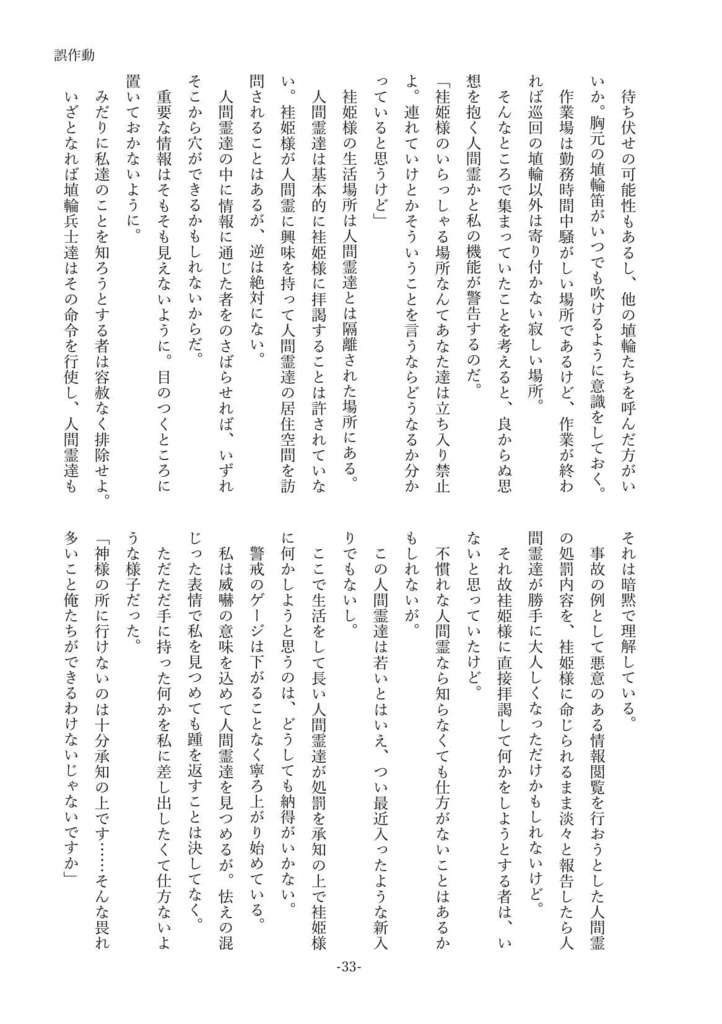 誤作動
待ち伏せの可能性もあるし、他の埴輪たちを呼んだ方がい
いか。胸元の埴輪笛がいつでも吹けるように意識をしておく。
作業場は勤務時間中騒がしい場所であるけど、作業が終わ
れば巡回の埴輪以外は寄り付かない寂しい場所。
そんなところで集まっていたことを考えると、良からぬ思
想を抱く人間霊かと私の機能が警告するのだ。
「袿姫様のいらっしゃる場所なんてあなた達は立ち入り禁止
よ。連れていけとかそういうことを言うならどうなるか分か
っていると思うけど」
袿姫様の生活場所は人間霊達とは隔離された場所にある。
人間霊達は基本的に袿姫様に拝謁することは許されていな
い。袿姫様が人間霊に興味を持って人間霊達の居住空間を訪
問されることはあるが、逆は絶対にない。
人間霊達の中に情報に通じた者をのさばらせれば、いずれ
そこから穴ができるかもしれないからだ。
重要な情報はそもそも見えないように。目のつくところに
置いておかないように。
みだりに私達のことを知ろうとする者は容赦なく排除せよ。
いざとなれば埴輪兵士達はその命令を行使し、人間霊達も
それは暗黙で理解している。
事故の例として悪意のある情報閲覧を行おうとした人間霊
の処罰内容を、袿姫様に命じられるまま淡々と報告したら人
間霊達が勝手に大人しくなっただけかもしれないけど。
それ故袿姫様に直接拝謁して何かをしようとする者は、い
ないと思っていたけど。
不慣れな人間霊なら知らなくても仕方がないことはあるか
もしれないが。
この人間霊達は若いとはいえ、つい最近入ったような新入
りでもないし。
ここで生活をして長い人間霊達が処罰を承知の上で袿姫様
に何かしようと思うのは、どうしても納得がいかない。
警戒のゲージは下がることなく寧ろ上がり始めている。
私は威嚇の意味を込めて人間霊達を見つめるが。怯えの混
じった表情で私を見つめても踵を返すことは決してなく。
ただただ手に持った何かを私に差し出したくて仕方ないよ
うな様子だった。
「神様の所に行けないのは十分承知の上です……そんな畏れ
多いこと俺たちができるわけないじゃないですか」
-33-